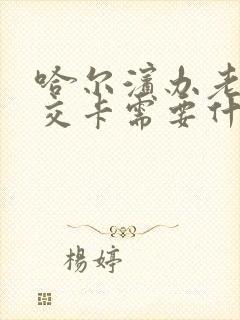 哈尔滨办老
交卡需要什
楊婷